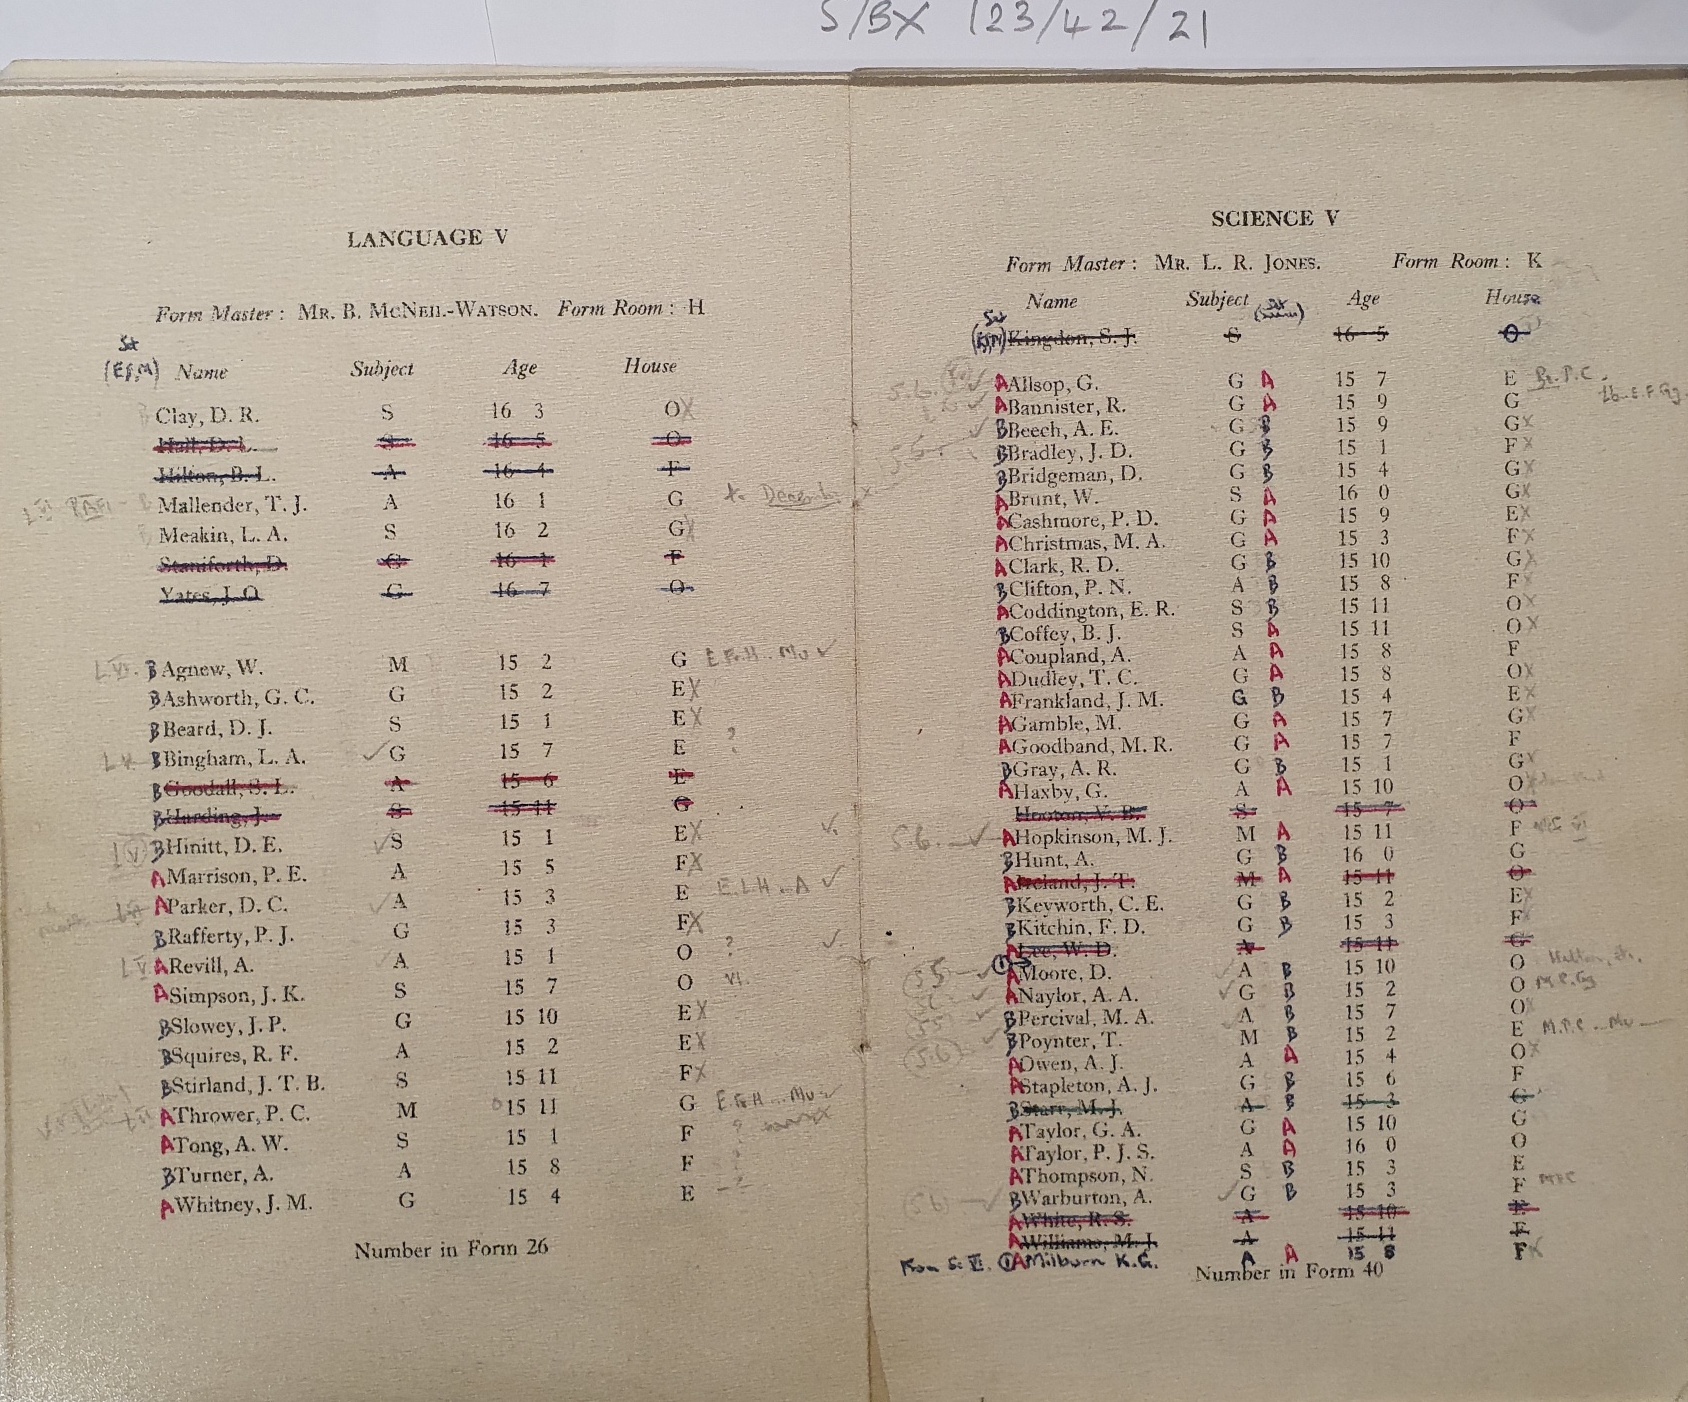 S/BX 123/42/21
LANGUAGE V
Form Master: MR. B. MCNEIL-WATSON. Form Room: H
Set
(EF,M) Name Subject Age House
Clay, D. R. S 16 3 O X
Hall, D. L. S 16 5 O
Hilton, B. L. A 16 4 F
Mallender, T. J. A 16 1 G to December X
Meakin, L. A. S 16 2 G X
Staniforth, D. G 16 1 F
Yates, J. O G 16 7 O
L VI. B Agnew, W. M 15 2 G E.Fr.H .. Mu ✓
B Ashworth, G. C. G 15 2 E X
B Beard, D. J. S 15 1 E X
L V. B Bingham, L. A. ✓ G 15 7 E ?
B Goodall, S. L. A 15 6 E
B Harding, J. S 15 11 G
L V B Hinitt, D. E. ✓ S 15 1 E X ✓.
A Marrison, P. E. A 15 5 F X
A Parker, D. C. ✓ A 15 3 E E.L.H .. A ✓
B Rafferty, P. J. G 15 3 F X
L V A Revill, A. A 15 1 O ? ✓.
A Simpson, J. K. S 15 7 O VI.
B Slowey, J. P. G 15 10 E X
B Squires, R. F. A 15 2 E X
B Stirland, J. T. B. S 15 11 F X
A Thrower, P. C. M 15 11 G E.Fr.H .. Mu.
A Tong, A. W. S 15 1 F ?
B Turner, A. A 15 8 F ?
A Whitney, J. M. G 15 4 E ?
Number in Form 26
SCIENCE V
Form Master: MR. L. R. JONES. Form Room: K
Name Subject Age House
Set
(EF,M) Kingdon, S. J. S 16 5 O
S.6. ✓ A Allsop, G. G A 15 7 E P.C.
✓ A Bannister, R. G A 15 9 G
✓ B Beech, A. E. G B 15 9 G X
S 6. B Bradley, J. D. G B 15 1 F X
B Bridgeman, D. G B 15 4 G X
A Brunt, W. S A 16 0 G X
A Cashmore, P. D. G A 15 9 E X
A Christmas, M. A. G A 15 3 F X
A Clark, R. D. G B 15 10 G X
B Clifton, P. N. A B 15 8 F X
A Coddington, E. R. S B 15 11 O X
B Coffey, B. J. S A 15 11 O X
A Coupland, A. A A 15 8 F
A Dudley, T. C. G A 15 8 O X
A Frankland, J. M. G B 15 4 E X
A Gamble, M. G A 15 7 G X
A Goodband, M. R. G A 15 7 F
B Gray, A. R. G B 15 1 G X
A Haxby, G. A A 15 10 O
Hooton, V. B. S 15 7 O
S.6. ✓ A Hopkinson, M. J. M A 15 11 F
B Hunt, A. G B 16 0 G
A Ireland, J. T. M A 15 11 O
B Keyworth, C. E. G B 15 2 E X
B Kitchin, F. D. G B 15 3 F X
A Lee, W. D. A 15 11 G
✓ A Moore, D. A B 15 10 O
✓ A Naylor, A. A. ✓ G B 15 2 O
✓ B Percival, M. A. A B 15 7 O
(S.6) B Poynter, T. M B 15 2 E M.P.C .. Mu
A Owen, A. J. A A 15 4 O X
A Stapleton, A. J. G B 15 6 F
B Starr, M. J. A B 15 3 G
A Taylor, G. A. G A 15 10 G
A Taylor, P. J. S. A A 16 0 O
A Thompson, N. S B 15 3 E
(S 6) ✓ B Warburton, A. ✓ G B 15 3 F
A White, R. S. A 15 10 E
A Williams, M. J. A 15 11 F
From S. VI. A Milburn K.G. A A 15 8 F X
Number in Form 40